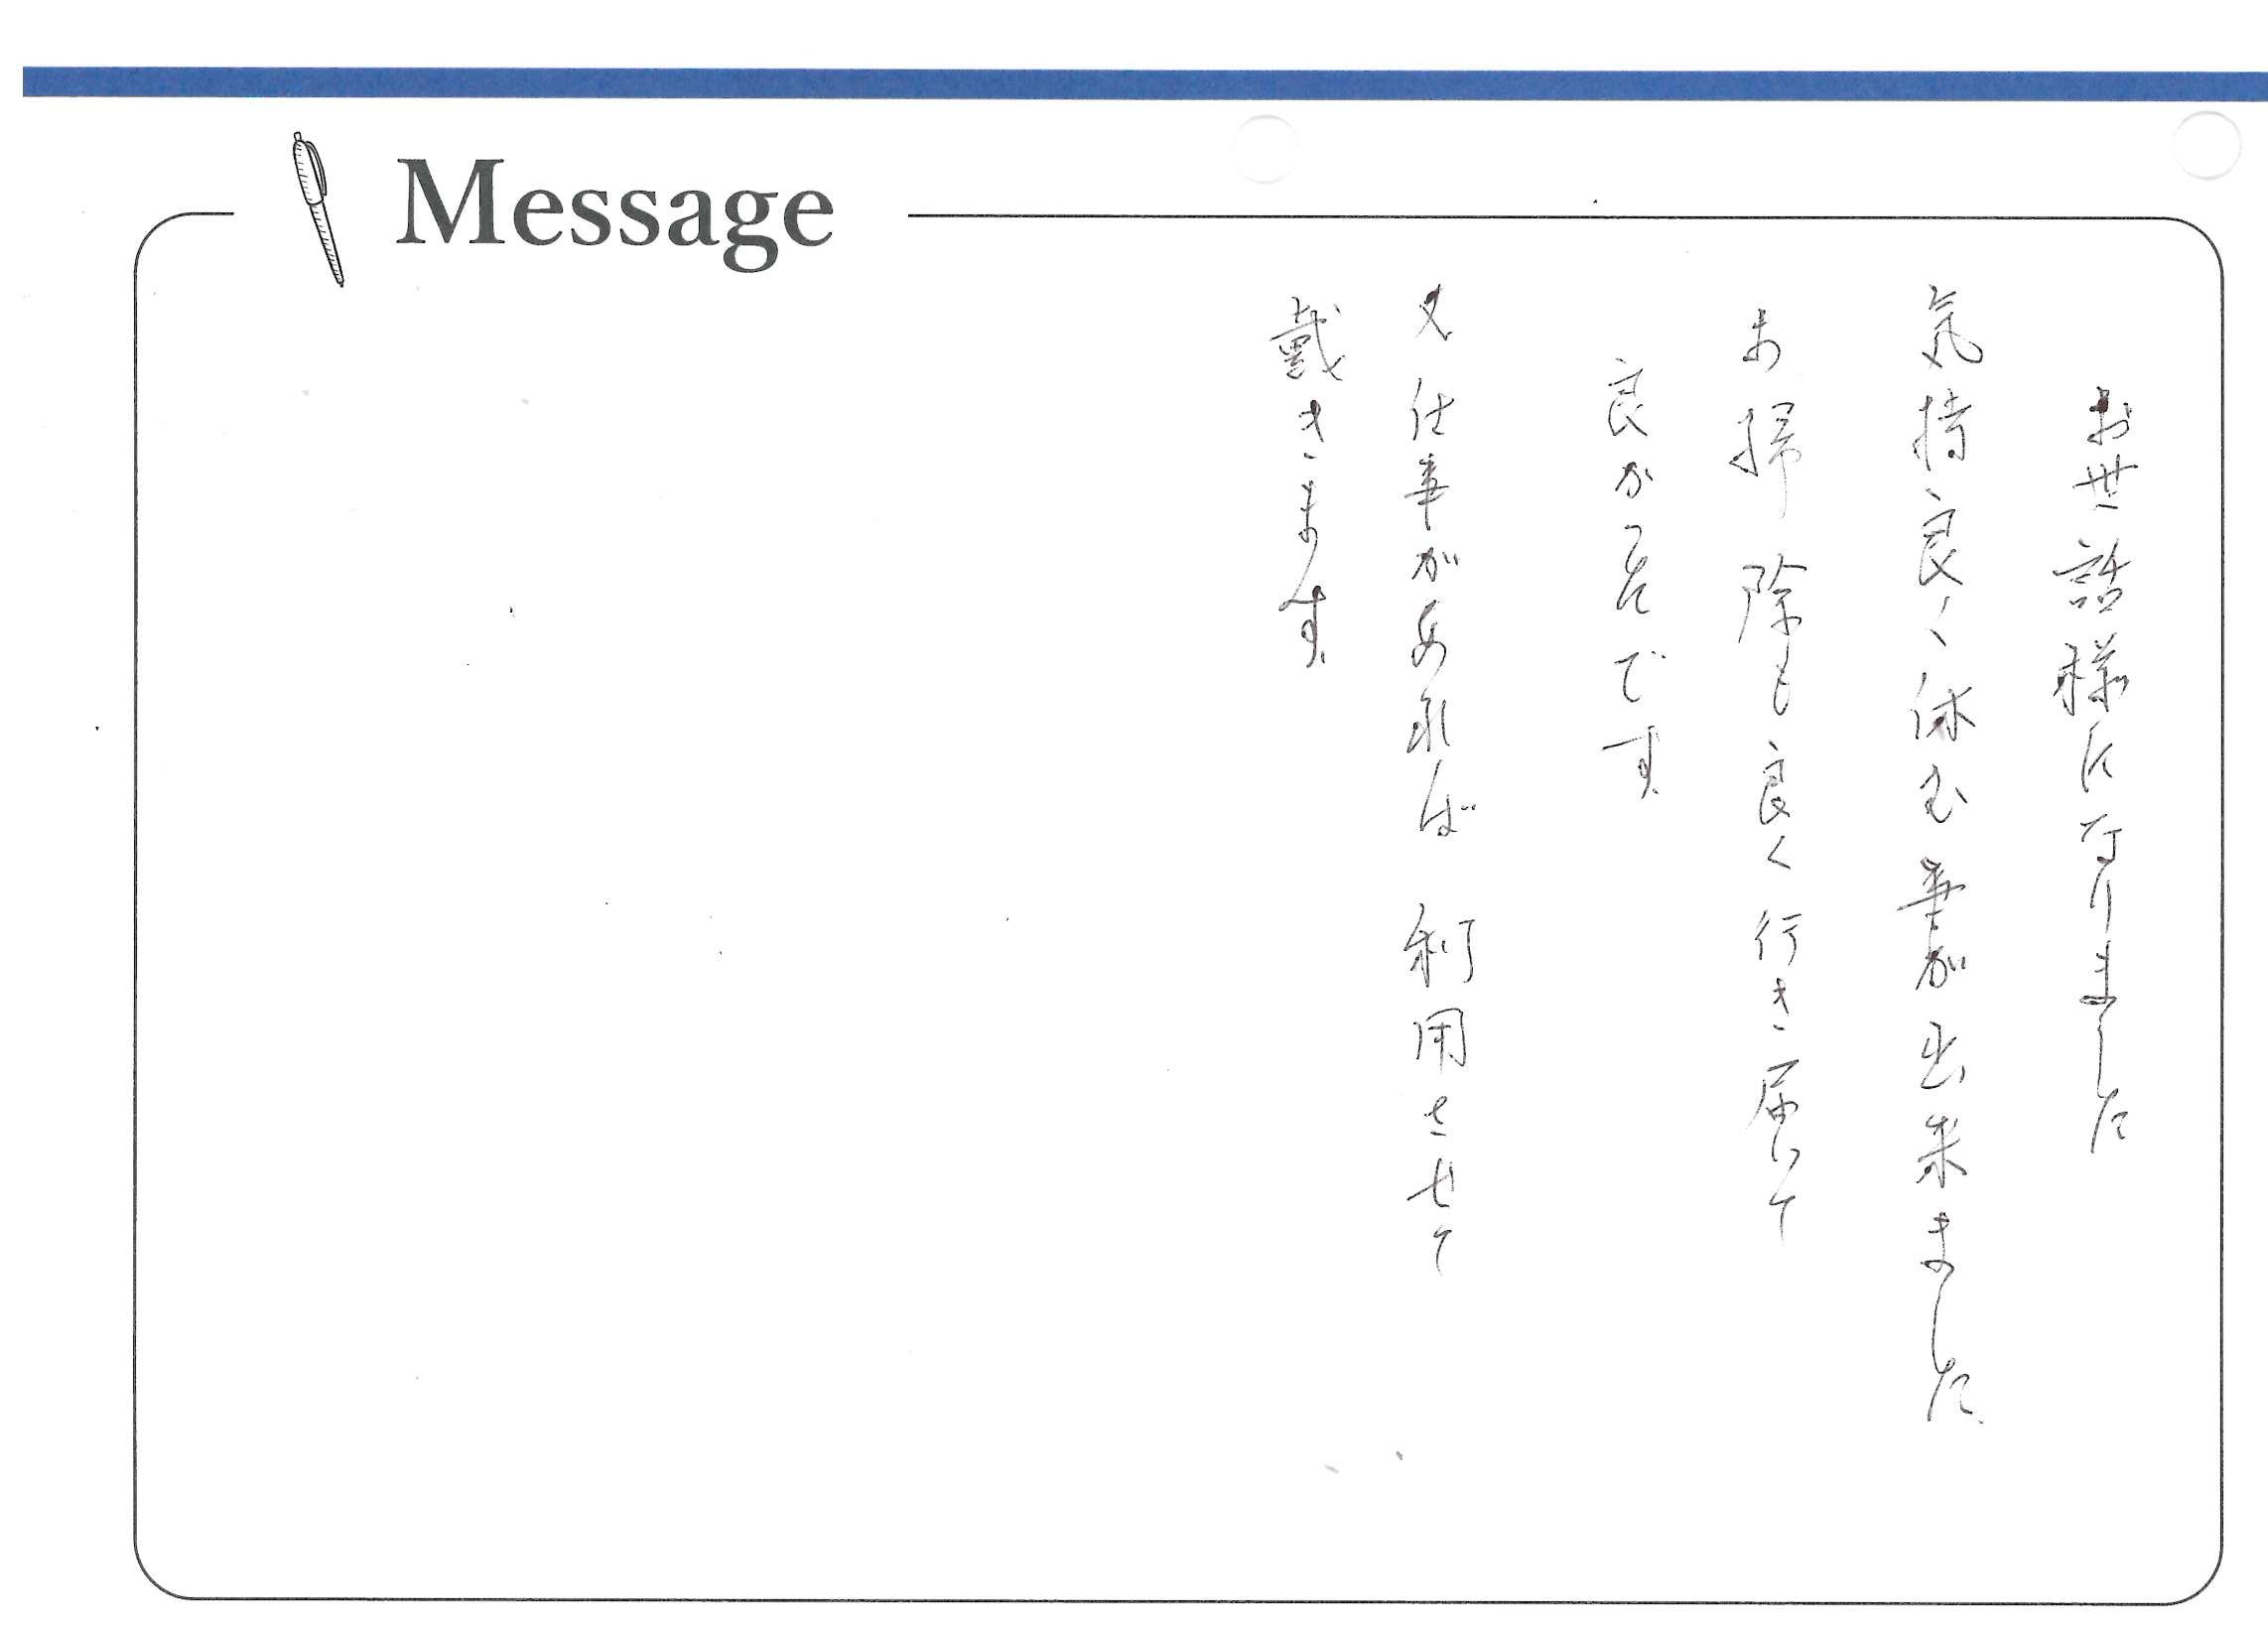 Message
お世話様になりました
気持良く休む事が出来ました
お掃除も良く行き届いて
良かったです
又仕事があれば 利用させて
戴きます